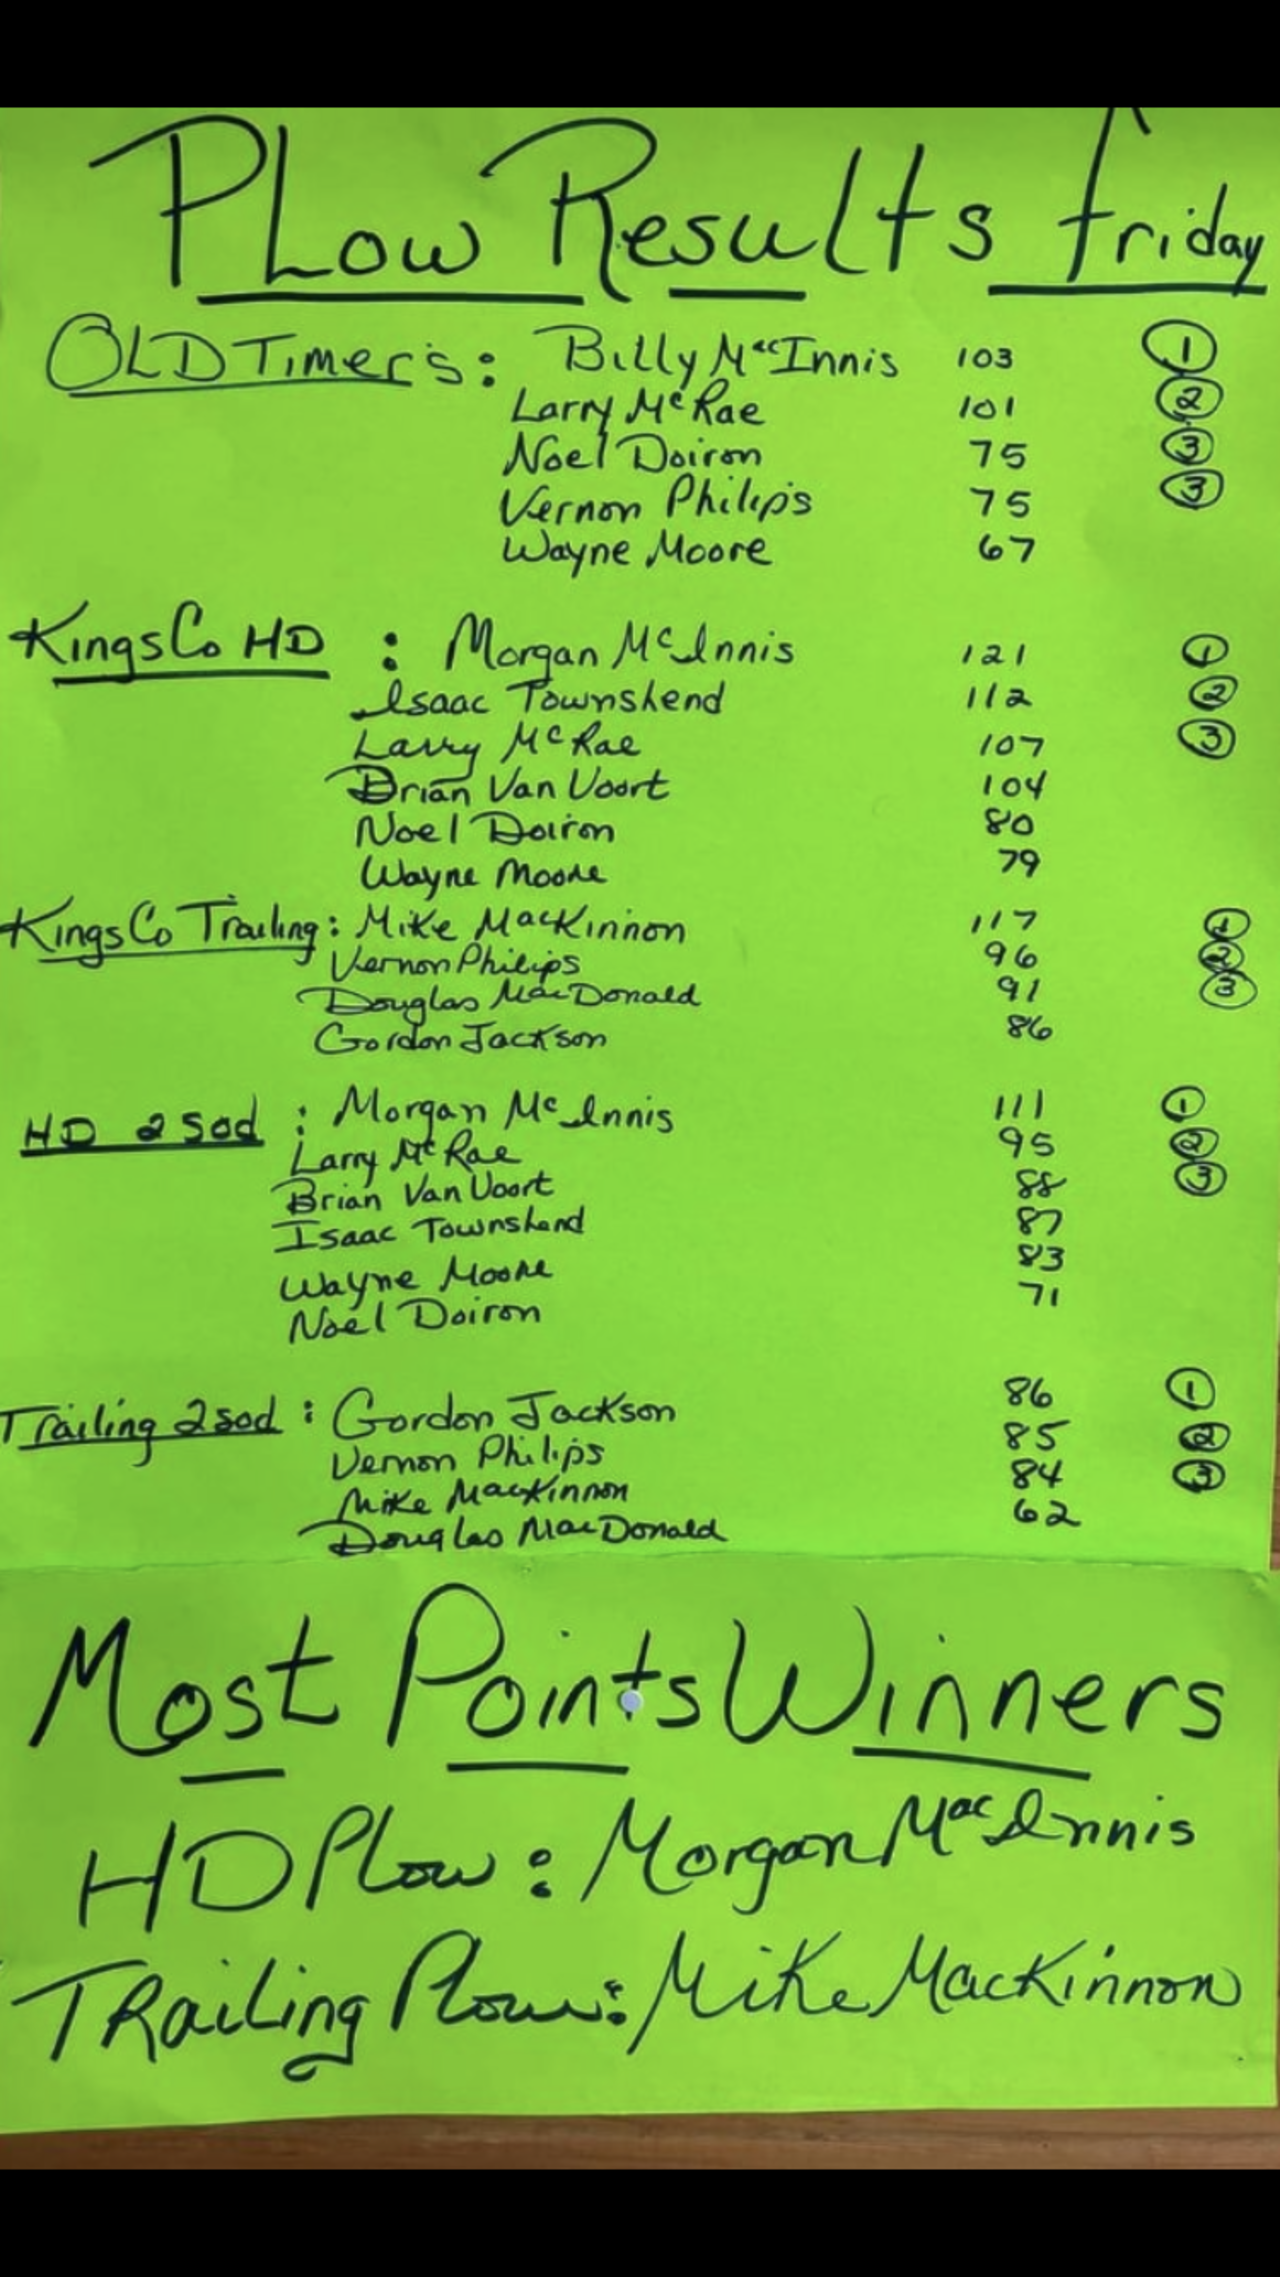 PLow Results friday
OLD Timer's: Billy MacInnis 103 1
Larry McRae 101 2
Noel Doiron 75 3
Vernon Philips 75 3
Wayne Moore 67
Kings Co HD : Morgan McInnis 121 1
Isaac Townshend 112 2
Larry McRae 107 3
Brian Van Voort 104
Noel Doiron 80
Wayne Moore 79
Kings Co Trailing: Mike MacKinnon 117 1
Vernon Philips 96 2
Douglas MacDonald 91 3
Gordon Jackson 86
HD 2 Sod : Morgan McInnis 111 1
Larry McRae 95 2
Brian Van Voort 88 3
Isaac Townshend 87
Wayne Moore 83
Noel Doiron 71
Trailing 2 sod : Gordon Jackson 86 1
Vernon Philips 85 2
Mike MacKinnon 84 3
Douglas MacDonald 62
Most Points Winners
HD Plow: Morgan MacInnis
TRailing Plow: Mike MacKinnon